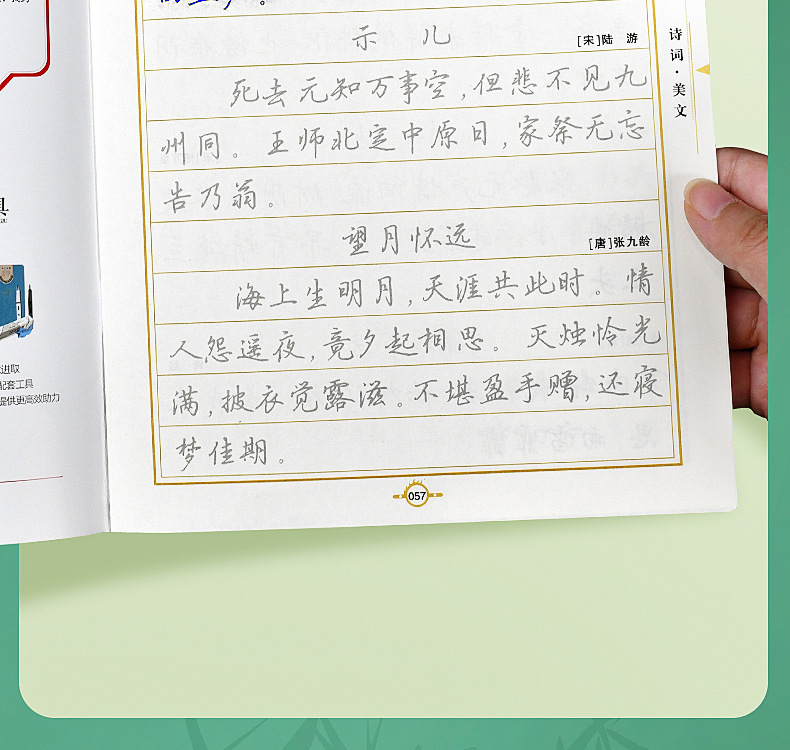 示 儿
[宋]陆 游
死去元知万事空,但悲不见九
州同。王师北定中原日,家祭无忘
告乃翁。
望月怀远
[唐]张九龄
海上生明月,天涯共此时。情
人怨遥夜,竟夕起相思。灭烛怜光
满,披衣觉露滋。不堪盈手赠,还寝
梦佳期。
057
诗词·美文
进取
配套工具
提供更高效助力